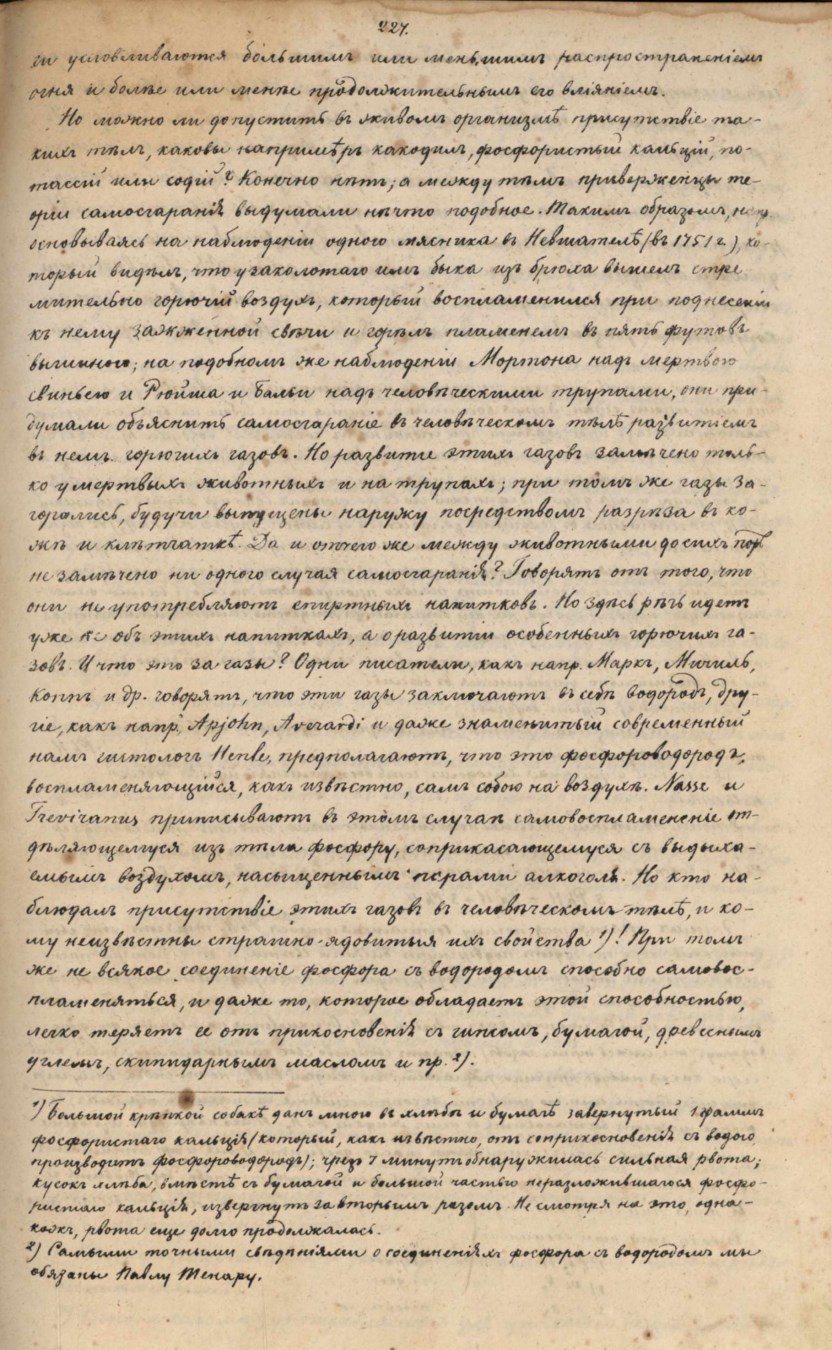 227.
ея условливаются большимъ или меньшимъ распространеніемъ
огня и болѣе или менѣе продолжительнымъ его вліяніемъ.
Но можно ли допустить въ живомъ организмѣ присутствіе та-
кихъ тѣлъ, каковы напримѣръ какодилъ, фосфористый кальцій, по-
тассій или содій? Конечно нѣтъ; а между тѣмъ приверженцы те-
оріи самосгаранія выдумали нѣчто подобное. Такимъ образомъ,
основываясь на наблюденіи одного мясника въ Невшателѣ (въ 1751 г.), ко-
торый видѣлъ, что у заколотаго имъ быка изъ брюха вышелъ стре
мительно горючій воздухъ, который воспламенился при поднесеніи
къ нему зажженной свѣчи и горѣлъ пламенемъ въ пять футовъ
вышиною; на подобномъ же наблюденіи Мортона надъ мертвою
свиньею и Рюйша и Бальи надъ человѣческими трупами, они при-
думали объяснить самосгараніе въ человѣческомъ тѣлѣ развитіемъ
въ немъ горючихъ газовъ. Но развитіе этихъ газовъ замѣчено толь-
ко у мертвыхъ животныхъ и на трупахъ; при томъ же газы за-
горались, будучи выпущены наружу посредствомъ разрѣза въ ко-
жѣ и клѣтчаткѣ. Да и отчего же между животными до сихъ поръ
не замѣчено ни одного случая самосгаранія? Говорятъ отъ того, что
они не употребляютъ спиртныхъ напитковъ. Но здѣсь рѣчь идетъ
уже не объ этихъ напиткахъ, а о развитіи особенныхъ горючихъ га-
зовъ. И что это за газы? Одни писатели, какъ напр. Маркъ, Мичиль,
Коппъ и др. говорятъ, что эти газы заключаютъ въ себѣ водородъ, дру-
гіе, какъ напр. Apjohn, Averardi и даже знаменитый современный
намъ гистологъ Henle, предполагаютъ, что это фосфороводородъ,
воспламеняющійся, какъ извѣстно, самъ собою на воздухѣ. Nasse и
Treviranus приписываютъ въ этомъ случаѣ самовоспламененіе от-
дѣляющемуся изъ тѣла фосфору, соприкасающемуся съ выдыха-
емымъ воздухомъ, насыщеннымъ парами алкоголя. Но кто на-
блюдалъ присутствіе этихъ газовъ въ человѣческомъ тѣлѣ, и ко-
му неизвѣстны страшно-ядовитыя ихъ свойства ¹)! При томъ
же не всякое соединеніе фосфора съ водородомъ способно самовос-
пламеняться, и даже то, которое обладаетъ этой способностью,
легко теряетъ ее отъ прикосновенія съ гипсомъ, бумагой, древеснымъ
углемъ, скипидарнымъ масломъ и пр. ²).
¹) Большой крѣпкой собакѣ данъ мною въ хлѣбѣ и бумагѣ завернутый 1 граммъ
фосфористаго кальція (который, какъ извѣстно, отъ соприкосновенія съ водою
производитъ фосфороводородъ); чрезъ 7 минутъ обнаружилась сильная рвота;
кусокъ хлѣба, вмѣстѣ съ бумагой и большой частью неразложившагося фосфо-
ристаго кальція, извергнутъ за вторымъ разомъ. Не смотря на это, одна-
кожъ, рвота еще долго продолжалась.
²) Самыми точными свѣдѣніями о соединеніяхъ фосфора съ водородомъ мы
обязаны Павлу Тенару.